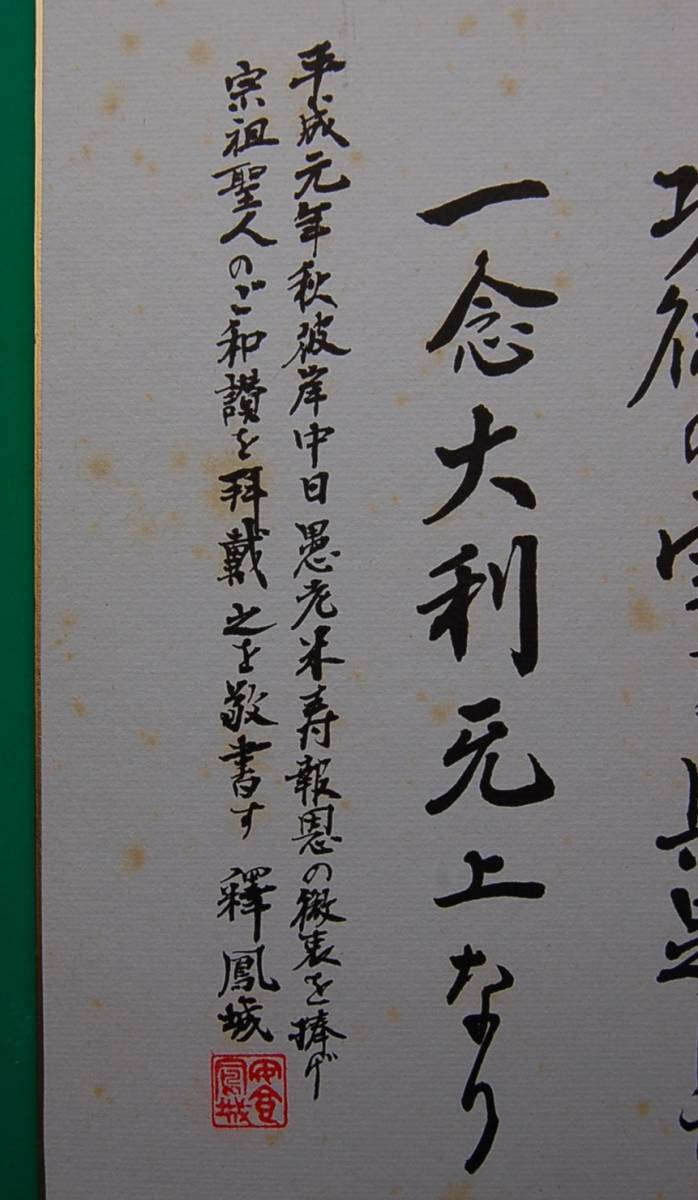 功徳の宝
一念大利无上なり
平成元年秋彼岸中日愚老米寿報恩の微衷を捧げ
宗祖聖人のご和讃を拝戴之を敬書す 釋鳳城